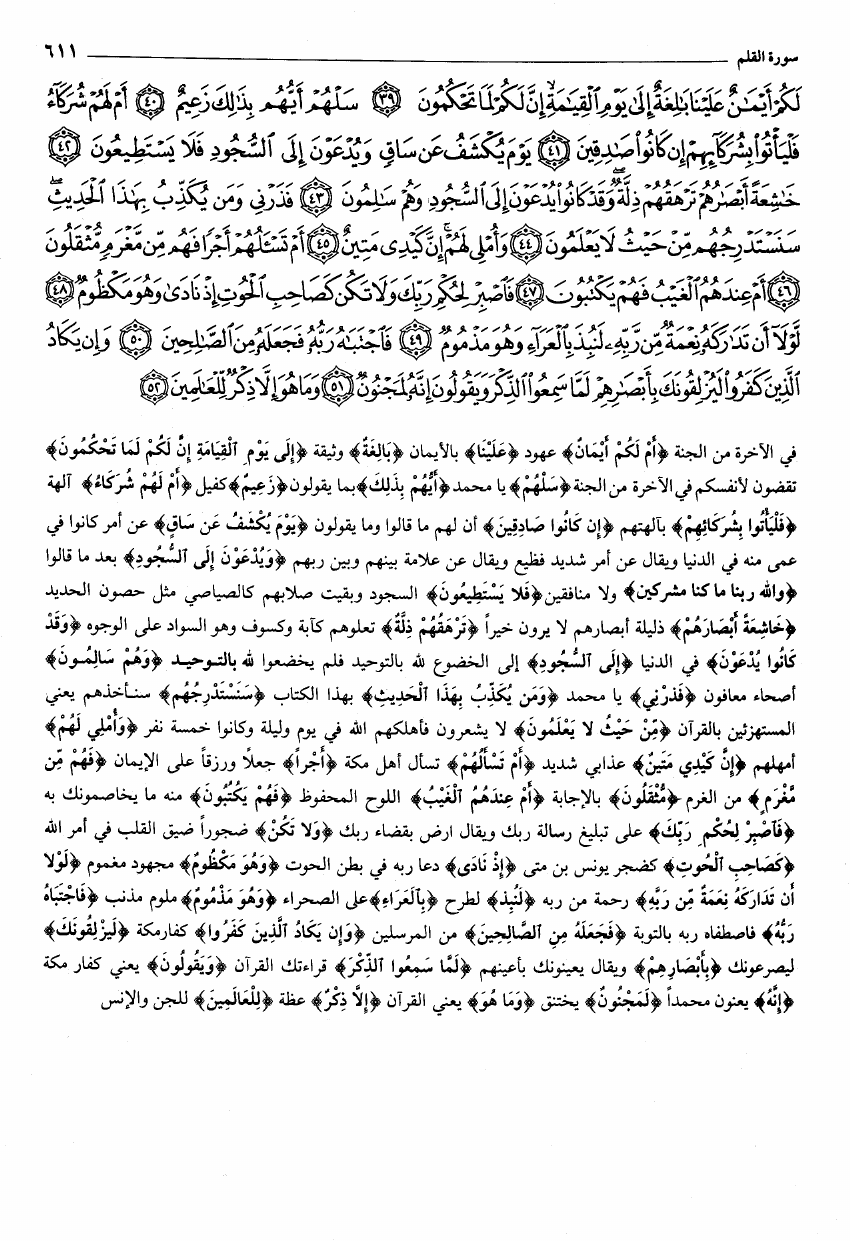 سورة القلم ٦١١
لَكُمْ أَيْمَٰنٌ عَلَيْنَا بَٰلِغَةٌ إِلَىٰ يَوْمِ ٱلْقِيَٰمَةِ ۙ إِنَّ لَكُمْ لَمَا تَحْكُمُونَ ﴿٣٩﴾ سَلْهُمْ أَيُّهُم بِذَٰلِكَ زَعِيمٌ ﴿٤٠﴾ أَمْ لَهُمْ شُرَكَآءُ
فَلْيَأْتُوا۟ بِشُرَكَآئِهِمْ إِن كَانُوا۟ صَٰدِقِينَ ﴿٤١﴾ يَوْمَ يُكْشَفُ عَن سَاقٍ وَيُدْعَوْنَ إِلَى ٱلسُّجُودِ فَلَا يَسْتَطِيعُونَ ﴿٤٢﴾
خَٰشِعَةً أَبْصَٰرُهُمْ تَرْهَقُهُمْ ذِلَّةٌ ۖ وَقَدْ كَانُوا۟ يُدْعَوْنَ إِلَى ٱلسُّجُودِ وَهُمْ سَٰلِمُونَ ﴿٤٣﴾ فَذَرْنِى وَمَن يُكَذِّبُ بِهَٰذَا ٱلْحَدِيثِ ۖ
سَنَسْتَدْرِجُهُم مِّنْ حَيْثُ لَا يَعْلَمُونَ ﴿٤٤﴾ وَأُمْلِى لَهُمْ ۚ إِنَّ كَيْدِى مَتِينٌ ﴿٤٥﴾ أَمْ تَسْـَٔلُهُمْ أَجْرًا فَهُم مِّن مَّغْرَمٍ مُّثْقَلُونَ
﴿٤٦﴾ أَمْ عِندَهُمُ ٱلْغَيْبُ فَهُمْ يَكْتُبُونَ ﴿٤٧﴾ فَٱصْبِرْ لِحُكْمِ رَبِّكَ وَلَا تَكُن كَصَاحِبِ ٱلْحُوتِ إِذْ نَادَىٰ وَهُوَ مَكْظُومٌ ﴿٤٨﴾
لَّوْلَآ أَن تَدَٰرَكَهُۥ نِعْمَةٌ مِّن رَّبِّهِۦ لَنُبِذَ بِٱلْعَرَآءِ وَهُوَ مَذْمُومٌ ﴿٤٩﴾ فَٱجْتَبَٰهُ رَبُّهُۥ فَجَعَلَهُۥ مِنَ ٱلصَّٰلِحِينَ ﴿٥٠﴾ وَإِن يَكَادُ
ٱلَّذِينَ كَفَرُوا۟ لَيُزْلِقُونَكَ بِأَبْصَٰرِهِمْ لَمَّا سَمِعُوا۟ ٱلذِّكْرَ وَيَقُولُونَ إِنَّهُۥ لَمَجْنُونٌ ﴿٥١﴾ وَمَا هُوَ إِلَّا ذِكْرٌ لِّلْعَٰلَمِينَ ﴿٥٢﴾
في الآخرة من الجنة ﴿أَمْ لَكُمْ أَيْمَانٌ﴾ عهود ﴿عَلَيْنَا﴾ بالأيمان ﴿بَالِغَةٌ﴾ وثيقة ﴿إِلَى يَوْمِ ٱلْقِيَامَةِ إِنَّ لَكُمْ لَمَا تَحْكُمُونَ﴾
تقضون لأنفسكم في الآخرة من الجنة ﴿سَلْهُمْ﴾ يا محمد ﴿أَيُّهُمْ بِذَلِكَ﴾ بما يقولون ﴿زَعِيمٌ﴾ كفيل ﴿أَمْ لَهُمْ شُرَكَاءُ﴾ آلهة
﴿فَلْيَأْتُوا بِشُرَكَائِهِمْ﴾ بآلهتهم ﴿إِن كَانُوا صَادِقِينَ﴾ أن لهم ما قالوا وما يقولون ﴿يَوْمَ يُكْشَفُ عَن سَاقٍ﴾ عن أمر كانوا في
عمى منه في الدنيا ويقال عن أمر شديد فظيع ويقال عن علامة بينهم وبين ربهم ﴿وَيُدْعَوْنَ إِلَى ٱلسُّجُودِ﴾ بعد ما قالوا
﴿والله ربنا ما كنا مشركين﴾ ولا منافقين ﴿فَلا يَسْتَطِيعُونَ﴾ السجود وبقيت صلابهم كالصياصي مثل حصون الحديد
﴿خَاشِعَةً أَبْصَارَهُمْ﴾ ذليلة أبصارهم لا يرون خيراً ﴿تَرْهَقُهُمْ ذِلَّةٌ﴾ تعلوهم كآبة وكسوف وهو السواد على الوجوه ﴿وَقَدْ
كَانُوا يُدْعَوْنَ﴾ في الدنيا ﴿إِلَى ٱلسُّجُودِ﴾ إلى الخضوع لله بالتوحيد فلم يخضعوا لله بالتوحيد ﴿وَهُمْ سَالِمُونَ﴾
أصحاء معافون ﴿فَذَرْنِي﴾ يا محمد ﴿وَمَن يُكَذِّبُ بِهَذَا ٱلْحَدِيثِ﴾ بهذا الكتاب ﴿سَنَسْتَدْرِجُهُم﴾ سنأخذهم يعني
المستهزئين بالقرآن ﴿مِّنْ حَيْثُ لا يَعْلَمُونَ﴾ لا يشعرون فأهلكهم الله في يوم وليلة وكانوا خمسة نفر ﴿وَأُمْلِي لَهُمْ﴾
أمهلهم ﴿إِنَّ كَيْدِي مَتَينٌ﴾ عذابي شديد ﴿أَمْ تَسْأَلُهُمْ﴾ تسأل أهل مكة ﴿أَجْراً﴾ جعلاً ورزقاً على الإيمان ﴿فَهُمْ مِّن
مَّغْرَمٍ﴾ من الغرم ﴿مُّثْقَلُونَ﴾ بالإجابة ﴿أَمْ عِندَهُمُ ٱلْغَيْبُ﴾ اللوح المحفوظ ﴿فَهُمْ يَكْتُبُونَ﴾ منه ما يخاصمونك به
﴿فَٱصْبِرْ لِحُكْمِ رَبِّكَ﴾ على تبليغ رسالة ربك ويقال ارض بقضاء ربك ﴿وَلا تَكُنْ﴾ ضجوراً ضيق القلب في أمر الله
﴿كَصَاحِبِ ٱلْحُوتِ﴾ كضجر يونس بن متى ﴿إِذْ نَادَى﴾ دعا ربه في بطن الحوت ﴿وَهُوَ مَكْظُومٌ﴾ مجهود مغموم ﴿لَوْلا
أَن تَدَارَكَهُ نِعْمَةٌ مِّن رَّبِّهِ﴾ رحمة من ربه ﴿لَنُبِذَ﴾ لطرح ﴿بِٱلْعَرَاءِ﴾ على الصحراء ﴿وَهُوَ مَذْمُومٌ﴾ ملوم مذنب ﴿فَاجْتَبَاهُ
رَبُّهُ﴾ فاصطفاه ربه بالتوبة ﴿فَجَعَلَهُ مِنَ ٱلصَّالِحِينَ﴾ من المرسلين ﴿وَإِن يَكَادُ ٱلَّذِينَ كَفَرُوا﴾ كفار مكة ﴿لَيَزْلِقُونَكَ﴾
ليصرعونك ﴿بِأَبْصَارِهِمْ﴾ ويقال يعينونك بأعينهم ﴿لَمَّا سَمِعُوا ٱلذِّكْرَ﴾ قراءتك القرآن ﴿وَيَقُولُونَ﴾ يعني كفار مكة
﴿إِنَّهُ﴾ يعنون محمداً ﴿لَمَجْنُونٌ﴾ يختنق ﴿وَمَا هُوَ﴾ يعني القرآن ﴿إِلاَّ ذِكْرٌ﴾ عظة ﴿لِلْعَالَمِينَ﴾ للجن والإنس